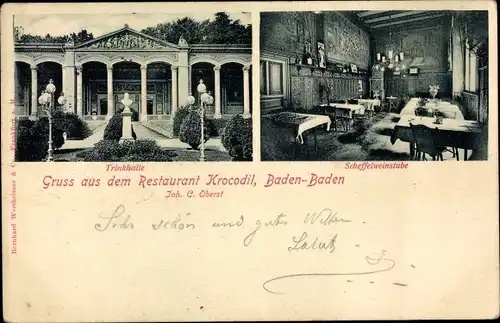 Trinkhalle
Scheffelweinstube
Gruss aus dem Restaurant Krocodil, Baden-Baden
Inh. C. Oberst
Sehr schön und gutes Wetter.
Bernhard Wertheimer & Co. Frankfurt a. M.